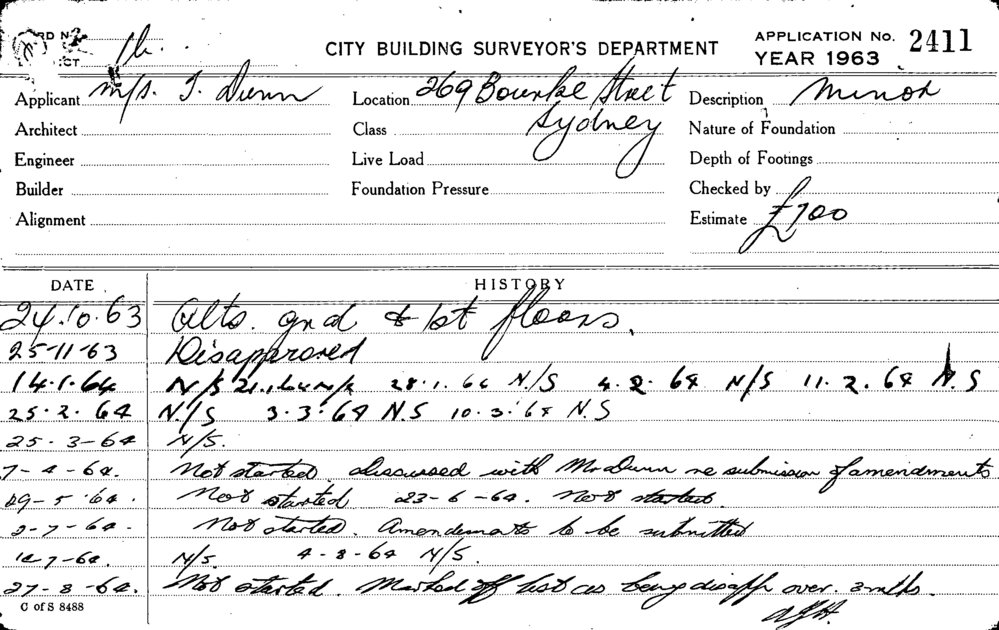 CITY BUILDING SURVEYOR'S DEPARTMENT
APPLICATION No. 2411
YEAR 1963
Applicant M/s. J. Dunn
Location 269 Bourke Street
Sydney
Description Minor
Architect
Class
Nature of Foundation
Engineer
Live Load
Depth of Footings
Builder
Foundation Pressure
Checked by
Alignment
Estimate £700
DATE HISTORY
24.10.63 Alts. gnd & 1st floors.
25-11-63 Disapproved
14.1.64 N/S 21.1.64 N/S 28.1.64 N/S 4.2.64 N/S 11.2.64 N.S
25.2.64 N./S 3.3.64 N.S 10.3.64 N.S
25.3-64 N/S.
7-4-64. Not started. discussed with Mr Dunn re submission of amendments
29-5-64. Not started 23-6-64. Not started.
2-7-64. Not started. Amendments to be submitted
N/S. 4-8-64 N/S.
27-8-64. Not started. Marked off list as being disapp. over 3 mths.
C of S 8488